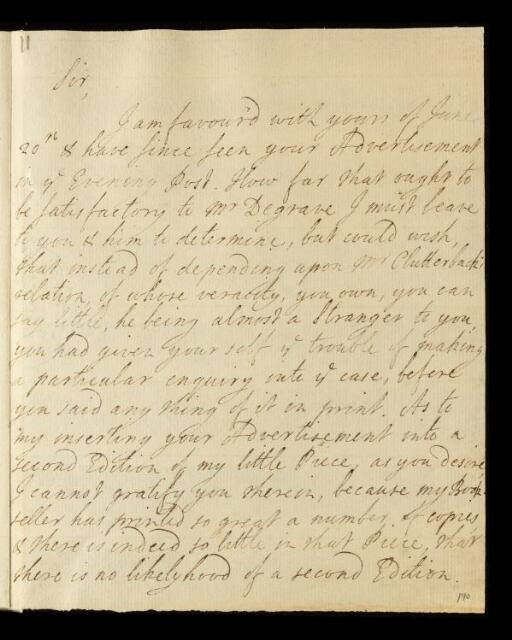 11
Sir,
I am favour'd with yours of June
20th & have since seen your Advertisement
in ye Evening Post. How far that ought to
be satisfactory to Mr Degrave I must leave
to you & him to determine, but could wish,
that instead of depending upon Mr Clutterbuck's
relation, of whose veracity, you own, you can
say little, he being almost a stranger to you,
you had given your self ye trouble of making
a particular enquiry into ye case, before
you said any thing of it in print. As to
my inserting your Advertisement into a
second Edition of my little Piece, as you desire,
I cannot gratify you therein, because my Book-
seller has printed so great a number of copies,
& there is indeed so little in that Piece, that
there is no likelyhood of a second Edition.